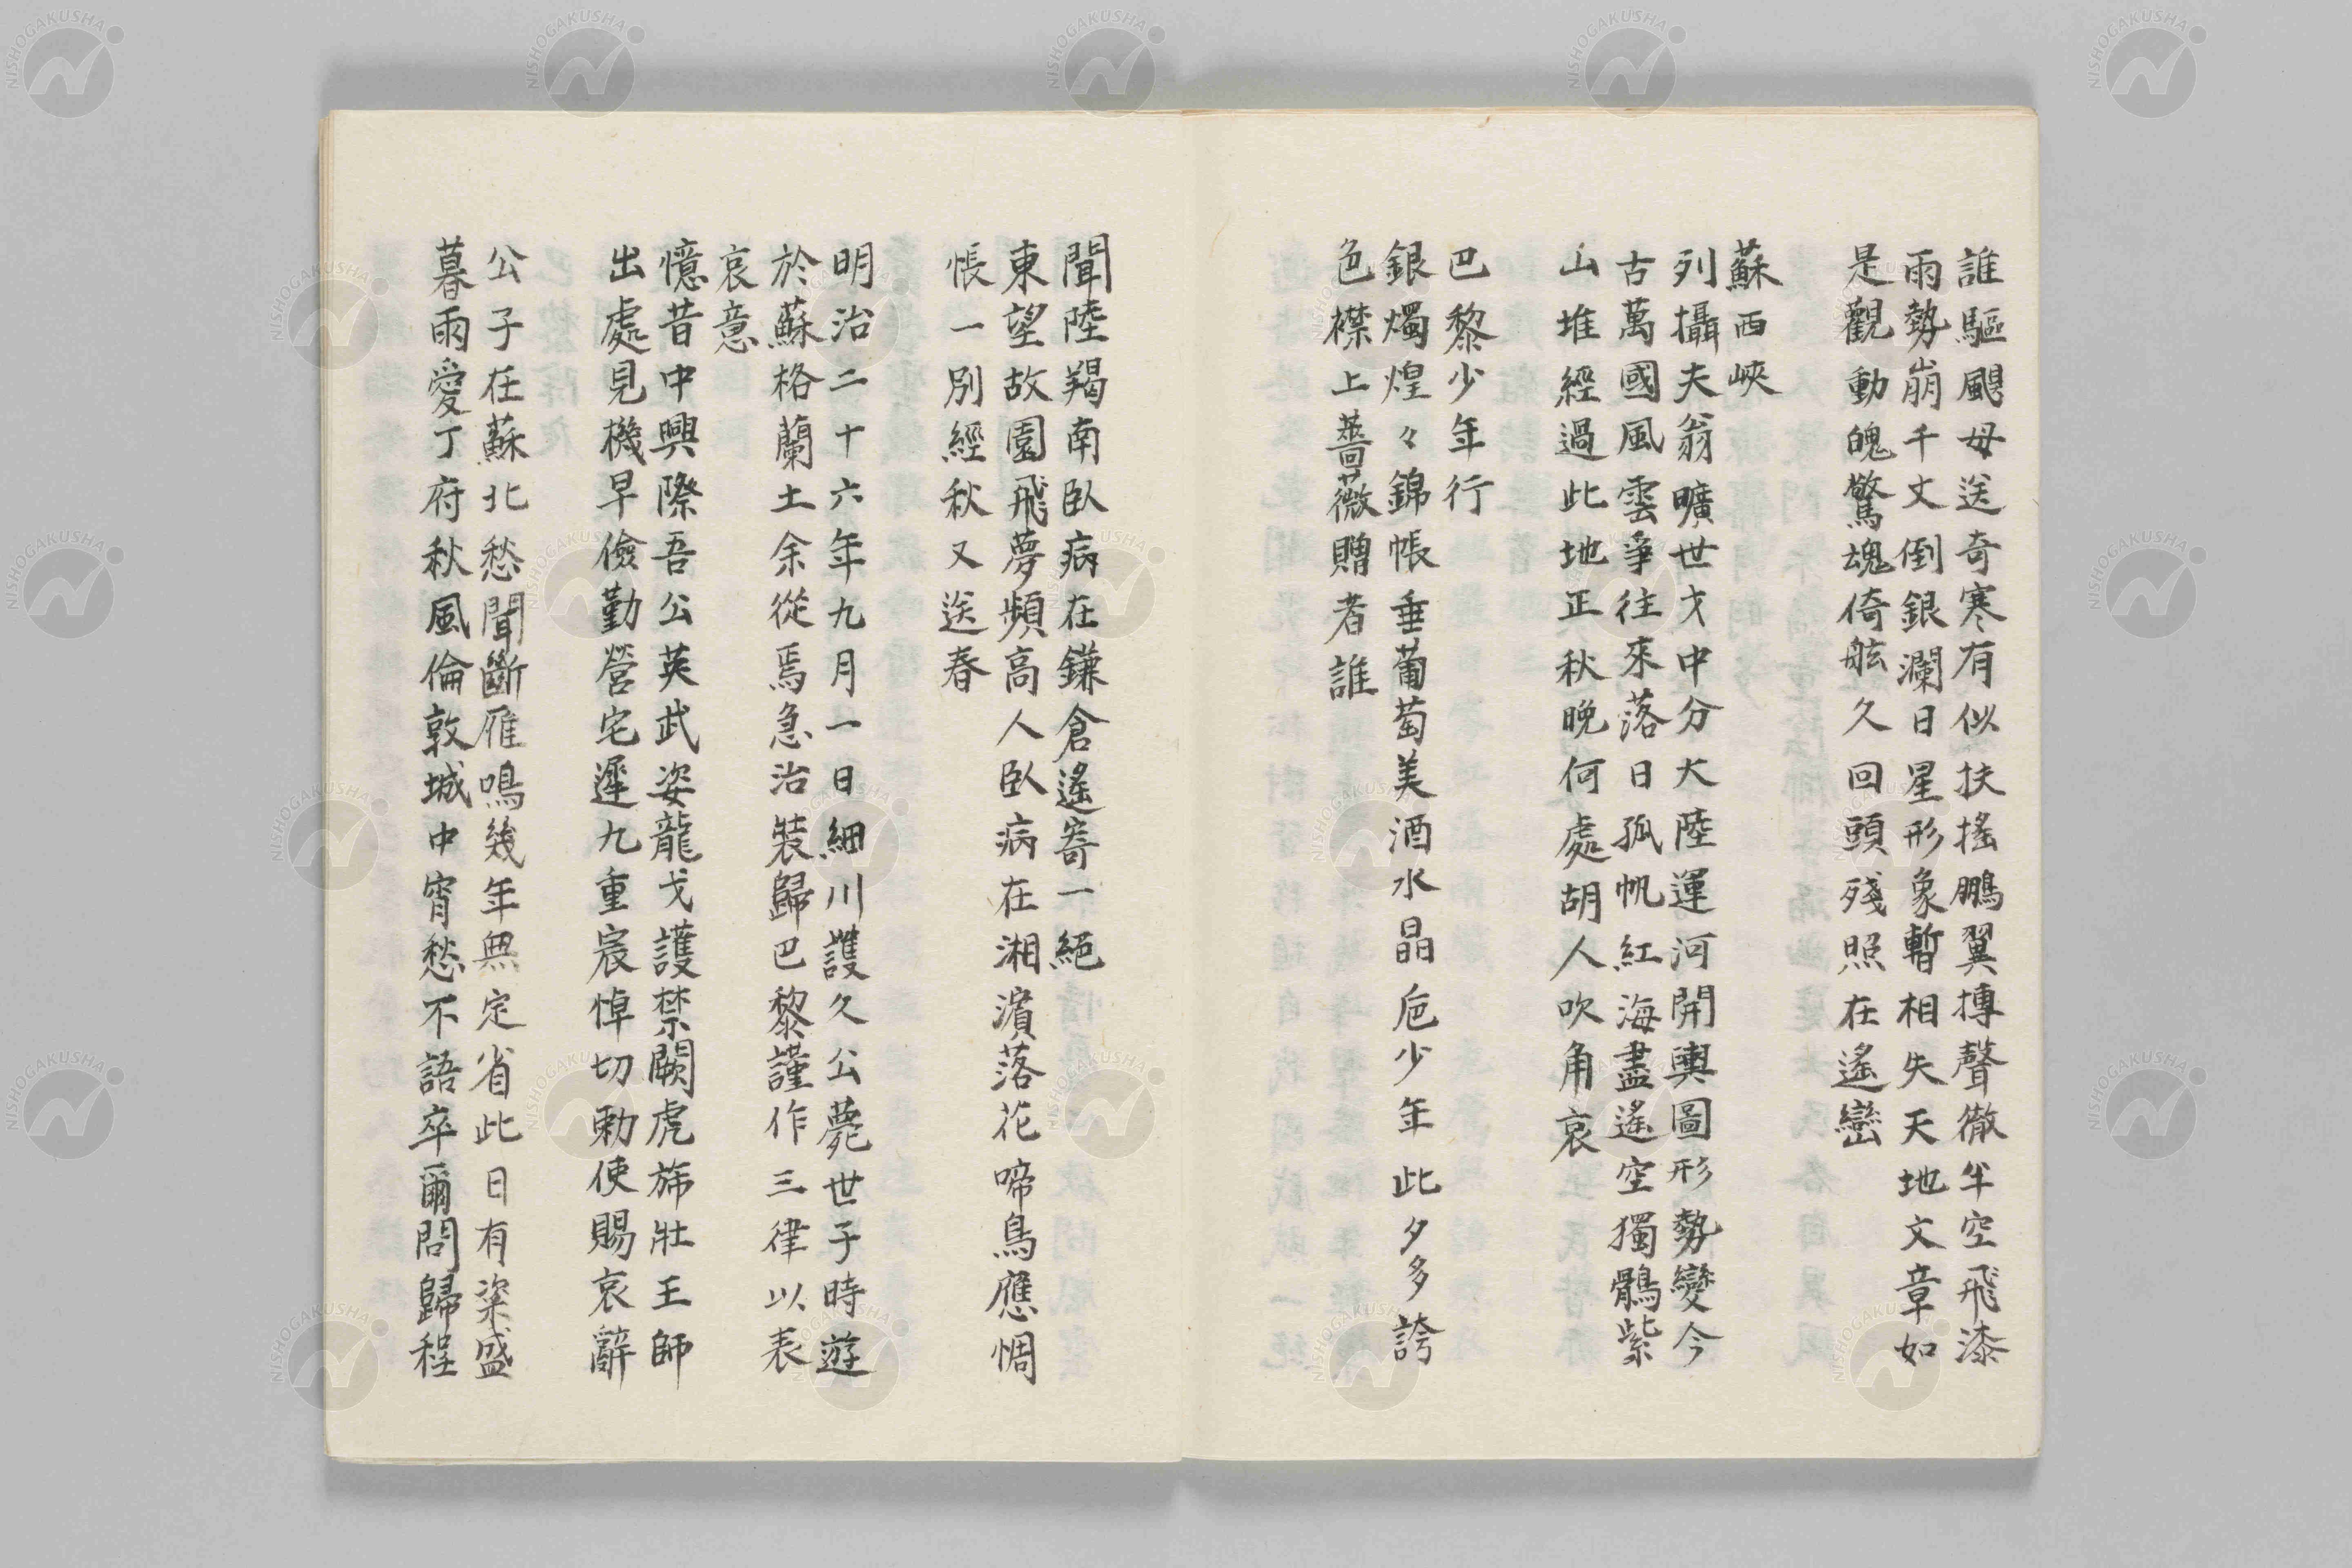 誰驅颶母送奇寒有似扶搖鵬翼摶聲徹半空飛漆
雨勢崩千丈倒銀瀾日星形象暫相失天地文章如
是觀動魄驚魂倚舷久回頭殘照在遙巒
蘇西峽
列攝夫翁曠世才中分大陸運河開輿圖形勢變今
古萬國風雲爭往來落日孤帆紅海盡遙空獨鶻紫
山堆經過此地正秋晚何處胡人吹角哀
巴黎少年行
銀燭煌々錦帳垂葡萄美酒水晶巵少年此夕多誇
色襟上薔薇贈者誰
聞陸羯南臥病在鎌倉遙寄一絕
東望故園飛夢頻高人臥病在湘濱落花啼鳥應惆
悵一別經秋又送春
明治二十六年九月一日細川護久公薨世子時遊
於蘇格蘭土余從焉急治裝歸巴黎謹作三律以表
哀意
憶昔中興際吾公英武姿龍戈護禁闕虎旆壯王師
出處見機早儉勤營宅遲九重宸悼切勅使賜哀辭
公子在蘇北愁聞斷雁鳴幾年無定省此日有粢盛
暮雨愛丁府秋風倫敦城中宵愁不語卒爾問歸程
NISHOGAKUSHA